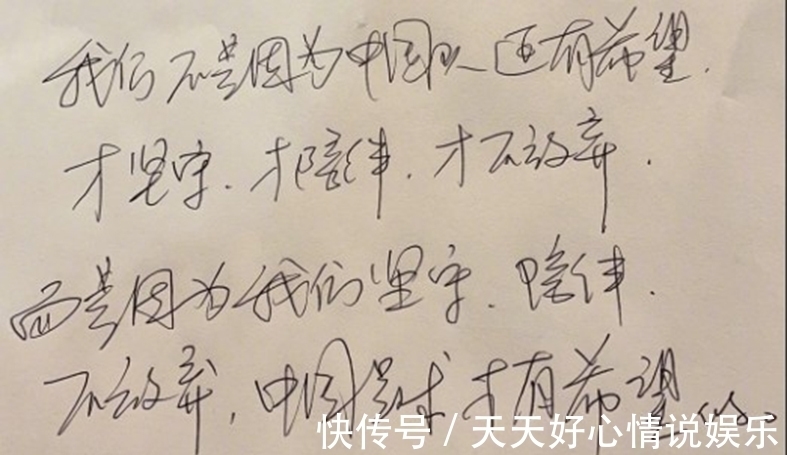 我们不是因为中国队还有希望.
才坚守.才陪伴.才不放弃.
而是因为我们坚守.陪伴.
不放弃,中国足球才有希望
快传号/天天好心情说娱乐